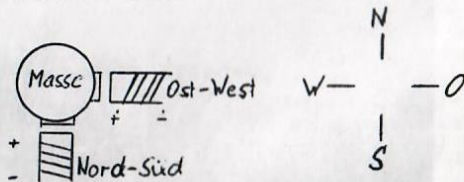 N
Masse
Ost-West
W
O
+ -
S
+
-
Nord-Süd